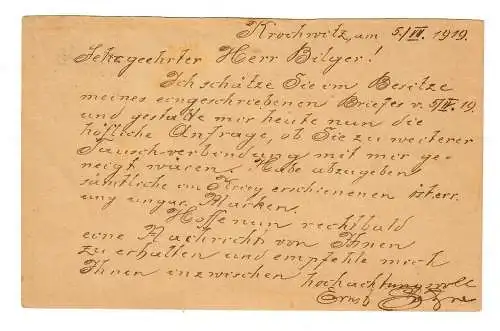 Krochwitz, am 5./IV. 1919.
Sehrgeehrter Herr Bilger!
Ich schätze Sie im Besitze
meines eingeschriebenen Briefes v. 5/IV. 19.
und gestatte mir heute nun die
höfliche Anfrage, ob Sie zu weiterer
Tauschverbindung mit mir ge-
neigt wären. Habe abzugeben
sämtliche im Krieg erschienenen österr.
ung ungar. Marken.
Hoffe nun rechtbald
eine Nachricht von Ihnen
zu erhalten und empfehle mich
Ihnen inzwischen hochachtungsvoll
Ernst